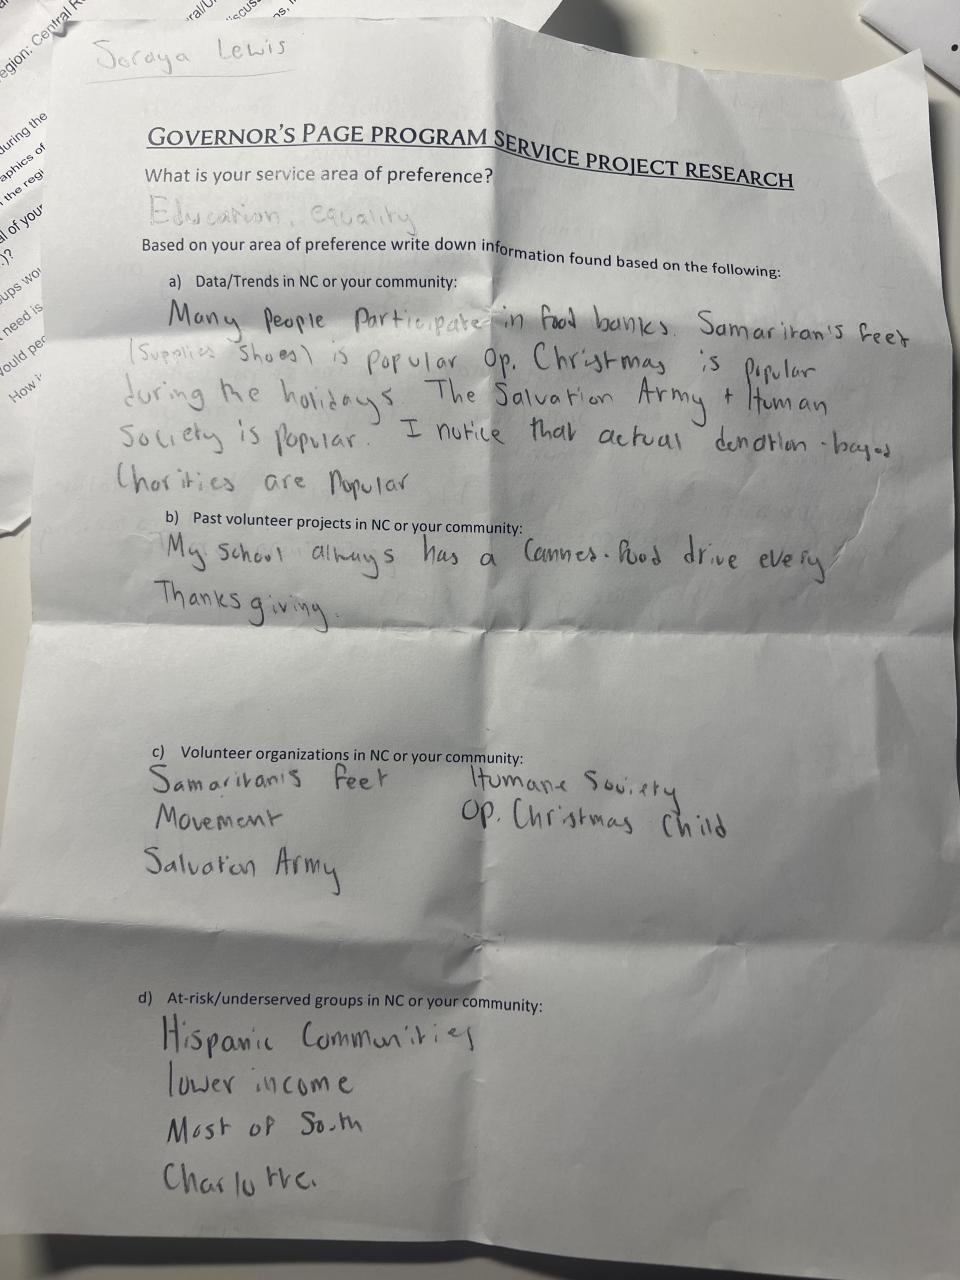 egion: Central R
ral/U
iscus
ns,
during the
aphics of
n the regi
al of your
.)?
ups wo
need is
ould pe
How i
Soraya Lewis
GOVERNOR'S PAGE PROGRAM SERVICE PROJECT RESEARCH
What is your service area of preference?
Education, equality
Based on your area of preference write down information found based on the following:
a) Data/Trends in NC or your community:
Many People Participate in food banks. Samaritan's feet
(Supplies Shoes) is popular Op. Christmas is Popular
during the holidays. The Salvation Army + Human
Society is Popular. I notice that actual donation-based
Charities are Popular
b) Past volunteer projects in NC or your community:
My school always has a Cannes-food drive every
Thanksgiving.
c) Volunteer organizations in NC or your community:
Samaritan's Feet Humane Society
Movement Op. Christmas Child
Salvation Army
d) At-risk/underserved groups in NC or your community:
Hispanic Communities
lower income
Most of South
Charlotte.